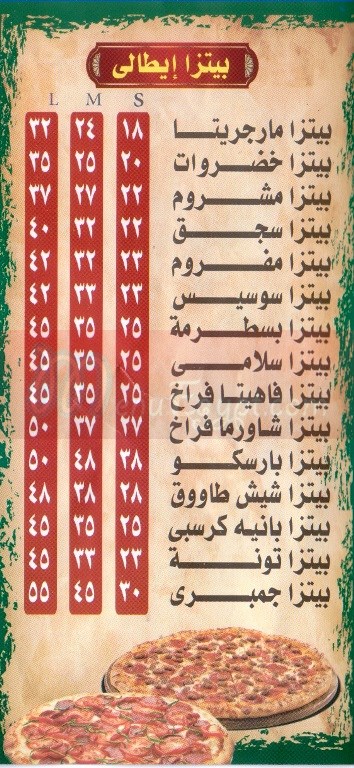 بيتزا إيطالى
S M L
بيتزا مارجريتا ١٨ ٢٤ ٣٢
بيتزا خضروات ٢٠ ٢٥ ٣٥
بيتزا مشروم ٢٢ ٢٧ ٣٧
بيتزا سجق ٢٢ ٣٢ ٤٠
بيتزا مفروم ٢٣ ٣٢ ٤٢
بيتزا سوسيس ٢٣ ٣٣ ٤٢
بيتزا بسطرمة ٢٥ ٣٥ ٤٥
بيتزا سلامى ٢٥ ٣٥ ٤٥
بيتزا فاهيتا فراخ ٢٥ ٣٥ ٤٥
بيتزا شاورما فراخ ٢٧ ٣٧ ٥٠
بيتزا بارسكو ٣٨ ٤٨ ٥٠
بيتزا شيش طاووق ٢٨ ٣٨ ٤٨
بيتزا بانيه كرسبى ٢٥ ٣٥ ٤٥
بيتزا تونة ٢٣ ٣٣ ٤٥
بيتزا جمبرى ٣٠ ٤٥ ٥٥